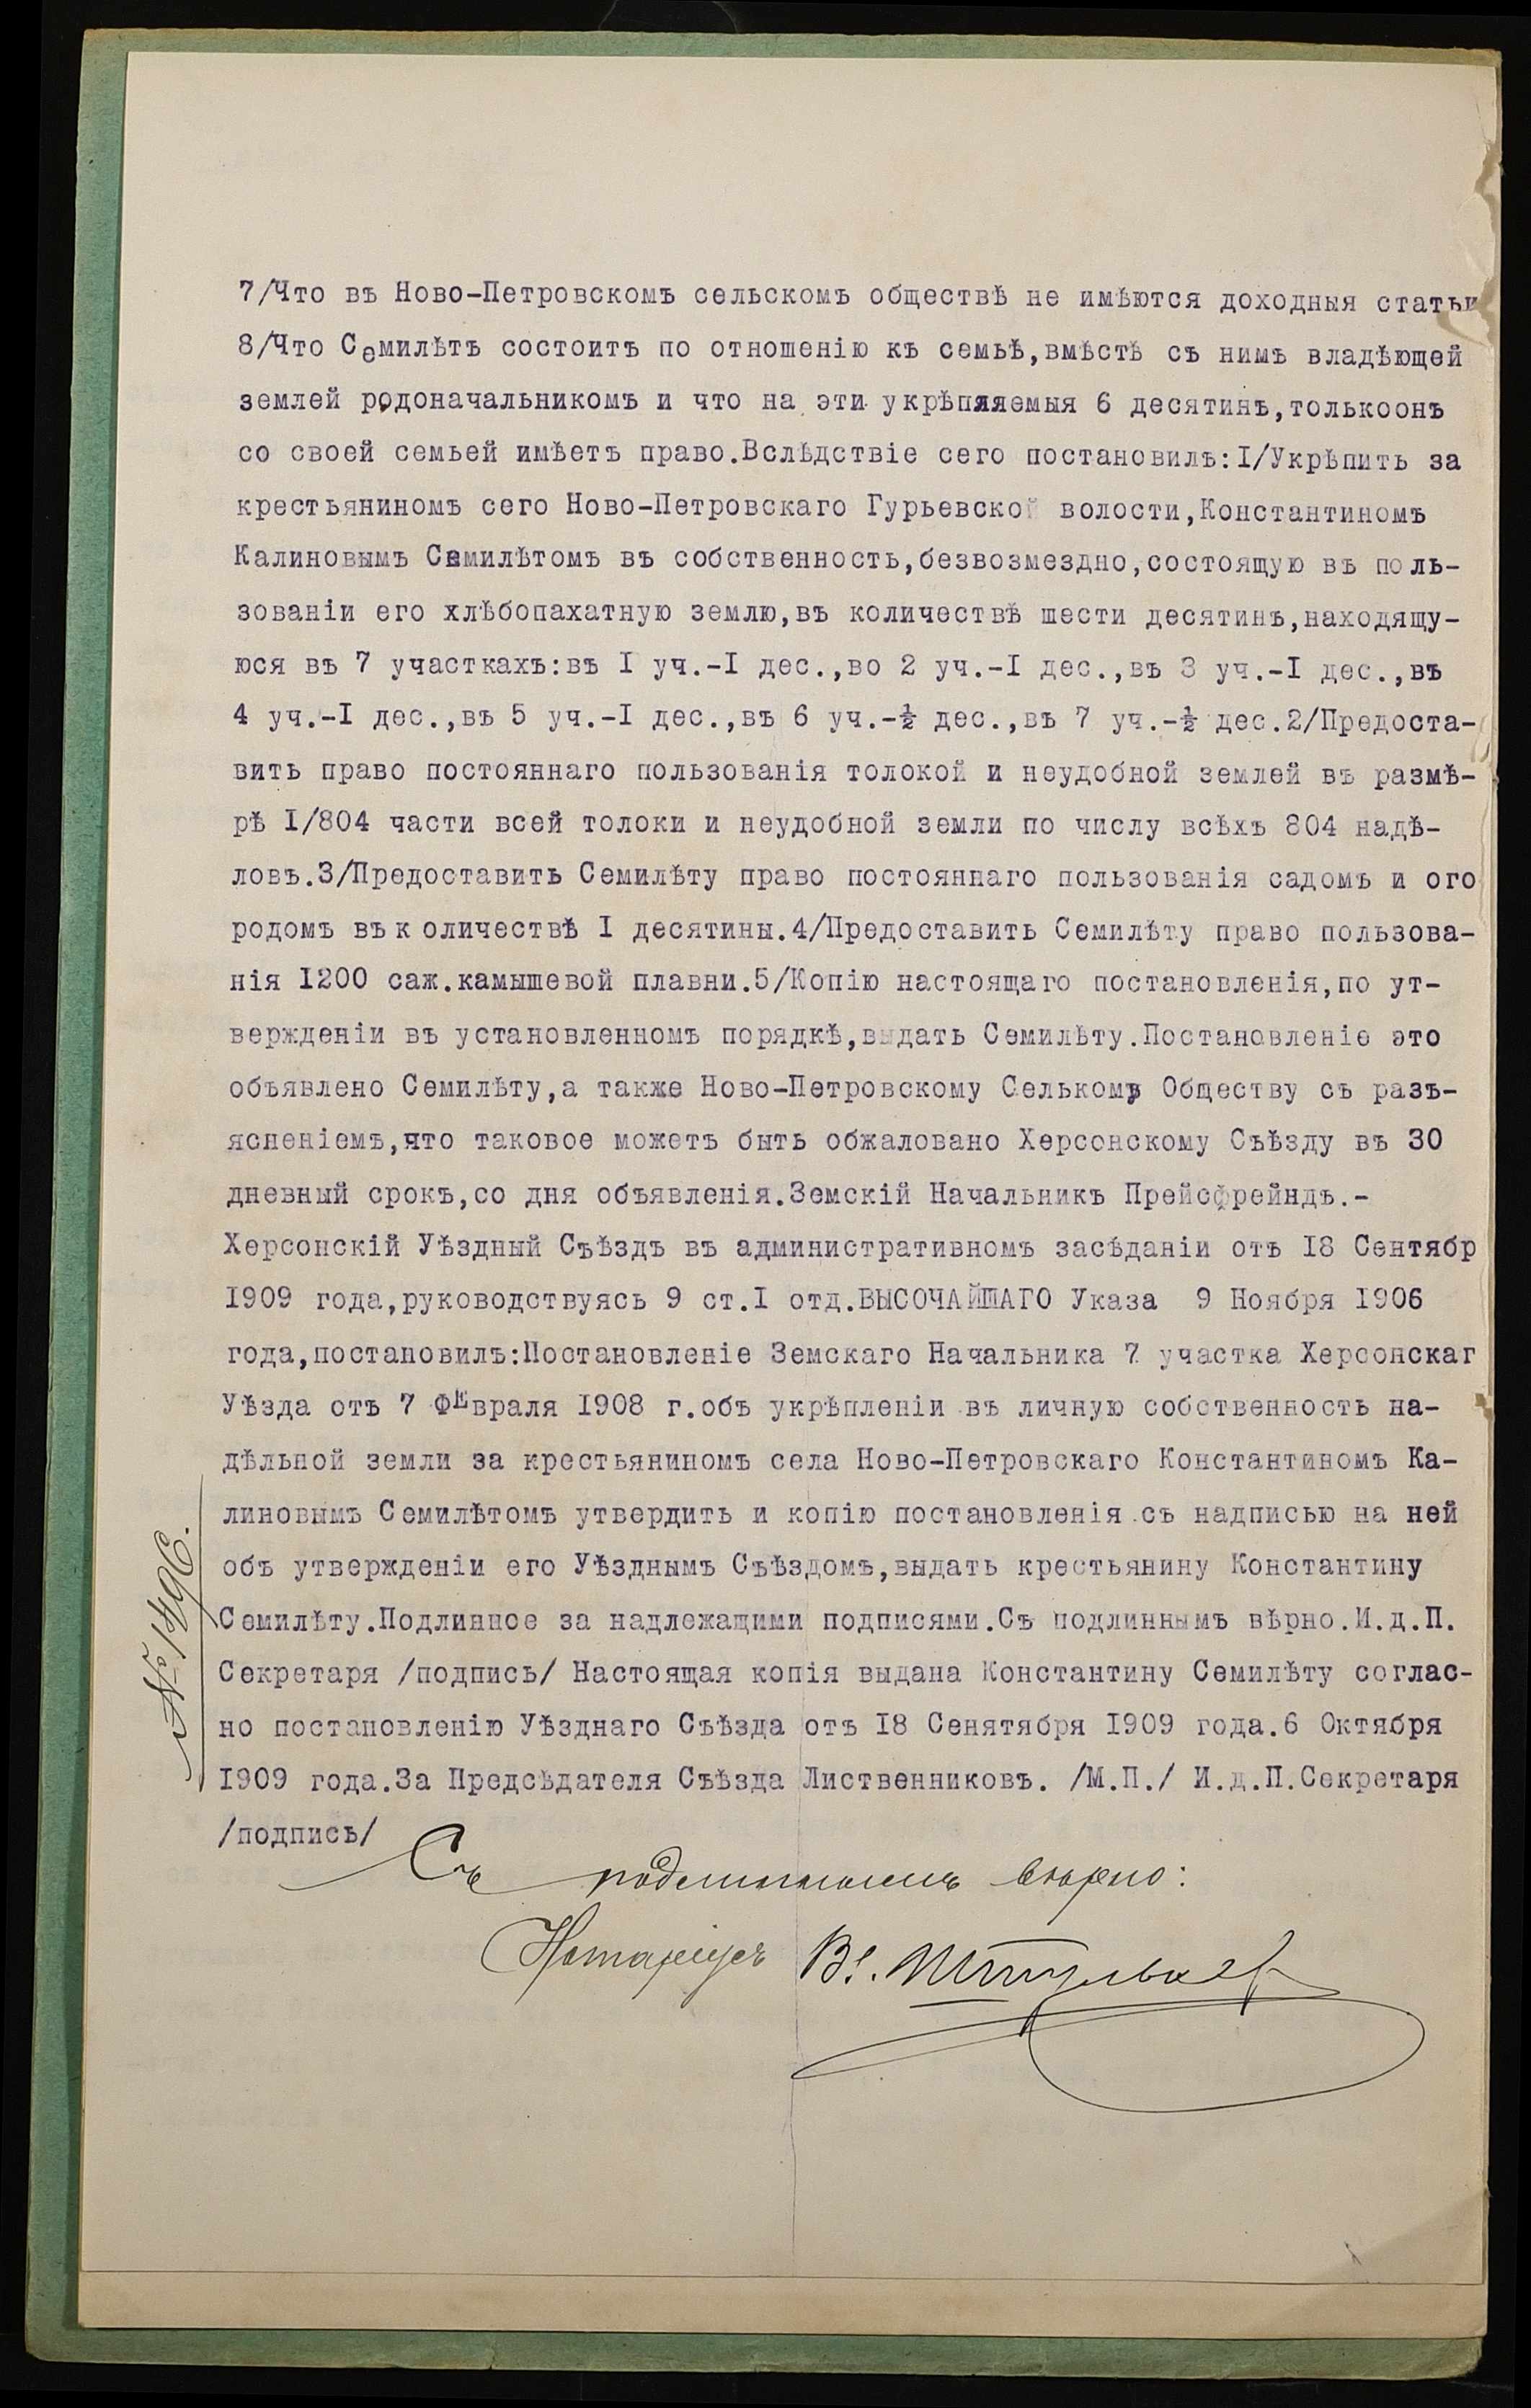 7/Что въ Ново-Петровскомъ сельскомъ обществѣ не имѣются доходныя статьи
8/Что Семилѣтъ состоитъ по отношенію къ семьѣ,вмѣстѣ съ нимъ владѣющей
землей родоначальникомъ и что на эти укрѣпляемыя 6 десятинъ,толькоонъ
со своей семьей имѣетъ право.Вслѣдствіе сего постановилъ:I/Укрѣпить за
крестьяниномъ сего Ново-Петровскаго Гурьевской волости,Константиномъ
Калиновымъ Семилѣтомъ въ собственность,безвозмездно,состоящую въ поль-
зованіи его хлѣбопахатную землю,въ количествѣ шести десятинъ,находящу-
юся въ 7 участкахъ:въ I уч.-I дес.,во 2 уч.-I дес.,въ 3 уч.-I дес.,въ
4 уч.-I дес.,въ 5 уч.-I дес.,въ 6 уч.-½ дес.,въ 7 уч.-½ дес.2/Предоста-
вить право постояннаго пользованія толокой и неудобной землей въ размѣ-
рѣ I/804 части всей толоки и неудобной земли по числу всѣхъ 804 надѣ-
ловъ.3/Предоставить Семилѣту право постояннаго пользованія садомъ и ого
родомъ въ к оличествѣ I десятины.4/Предоставить Семилѣту право пользова-
нія I200 саж.камышевой плавни.5/Копію настоящаго постановленія,по ут-
вержденіи въ установленномъ порядкѣ,выдать Семилѣту.Постановленіе это
объявлено Семилѣту,а также Ново-Петровскому Селькому Обществу съ разъ-
ясненіемъ,что таковое можетъ быть обжаловано Херсонскому Съѣзду въ 30
дневный срокъ,со дня объявленія.Земскій Начальникъ Прейсфрейндъ.-
Херсонскій Уѣздный Съѣздъ въ административномъ засѣданіи отъ I8 Сентябр
I909 года,руководствуясь 9 ст.I отд.ВЫСОЧАЙШАГО Указа 9 Ноября I906
года,постановилъ:Постановленіе Земскаго Начальника 7 участка Херсонскаг
Уѣзда отъ 7 Февраля I908 г.объ укрѣпленіи въ личную собственность на-
дѣльной земли за крестьяниномъ села Ново-Петровскаго Константиномъ Ка-
линовымъ Семилѣтомъ утвердить и копію постановленія съ надписью на ней
объ утвержденіи его Уѣзднымъ Съѣздомъ,выдать крестьянину Константину
Семилѣту.Подлинное за надлежащими подписями.Съ подлиннымъ вѣрно.И.д.П.
Секретаря /подпись/ Настоящая копія выдана Константину Семилѣту соглас-
но постановленію Уѣзднаго Съѣзда отъ I8 Сенятября I909 года.6 Октября
I909 года.За Предсѣдателя Съѣзда Лиственниковъ. /М.П./ И.д.П.Секретаря
/подпись/
Съ подлиннымъ вѣрно:
Нотаріусъ Вл.